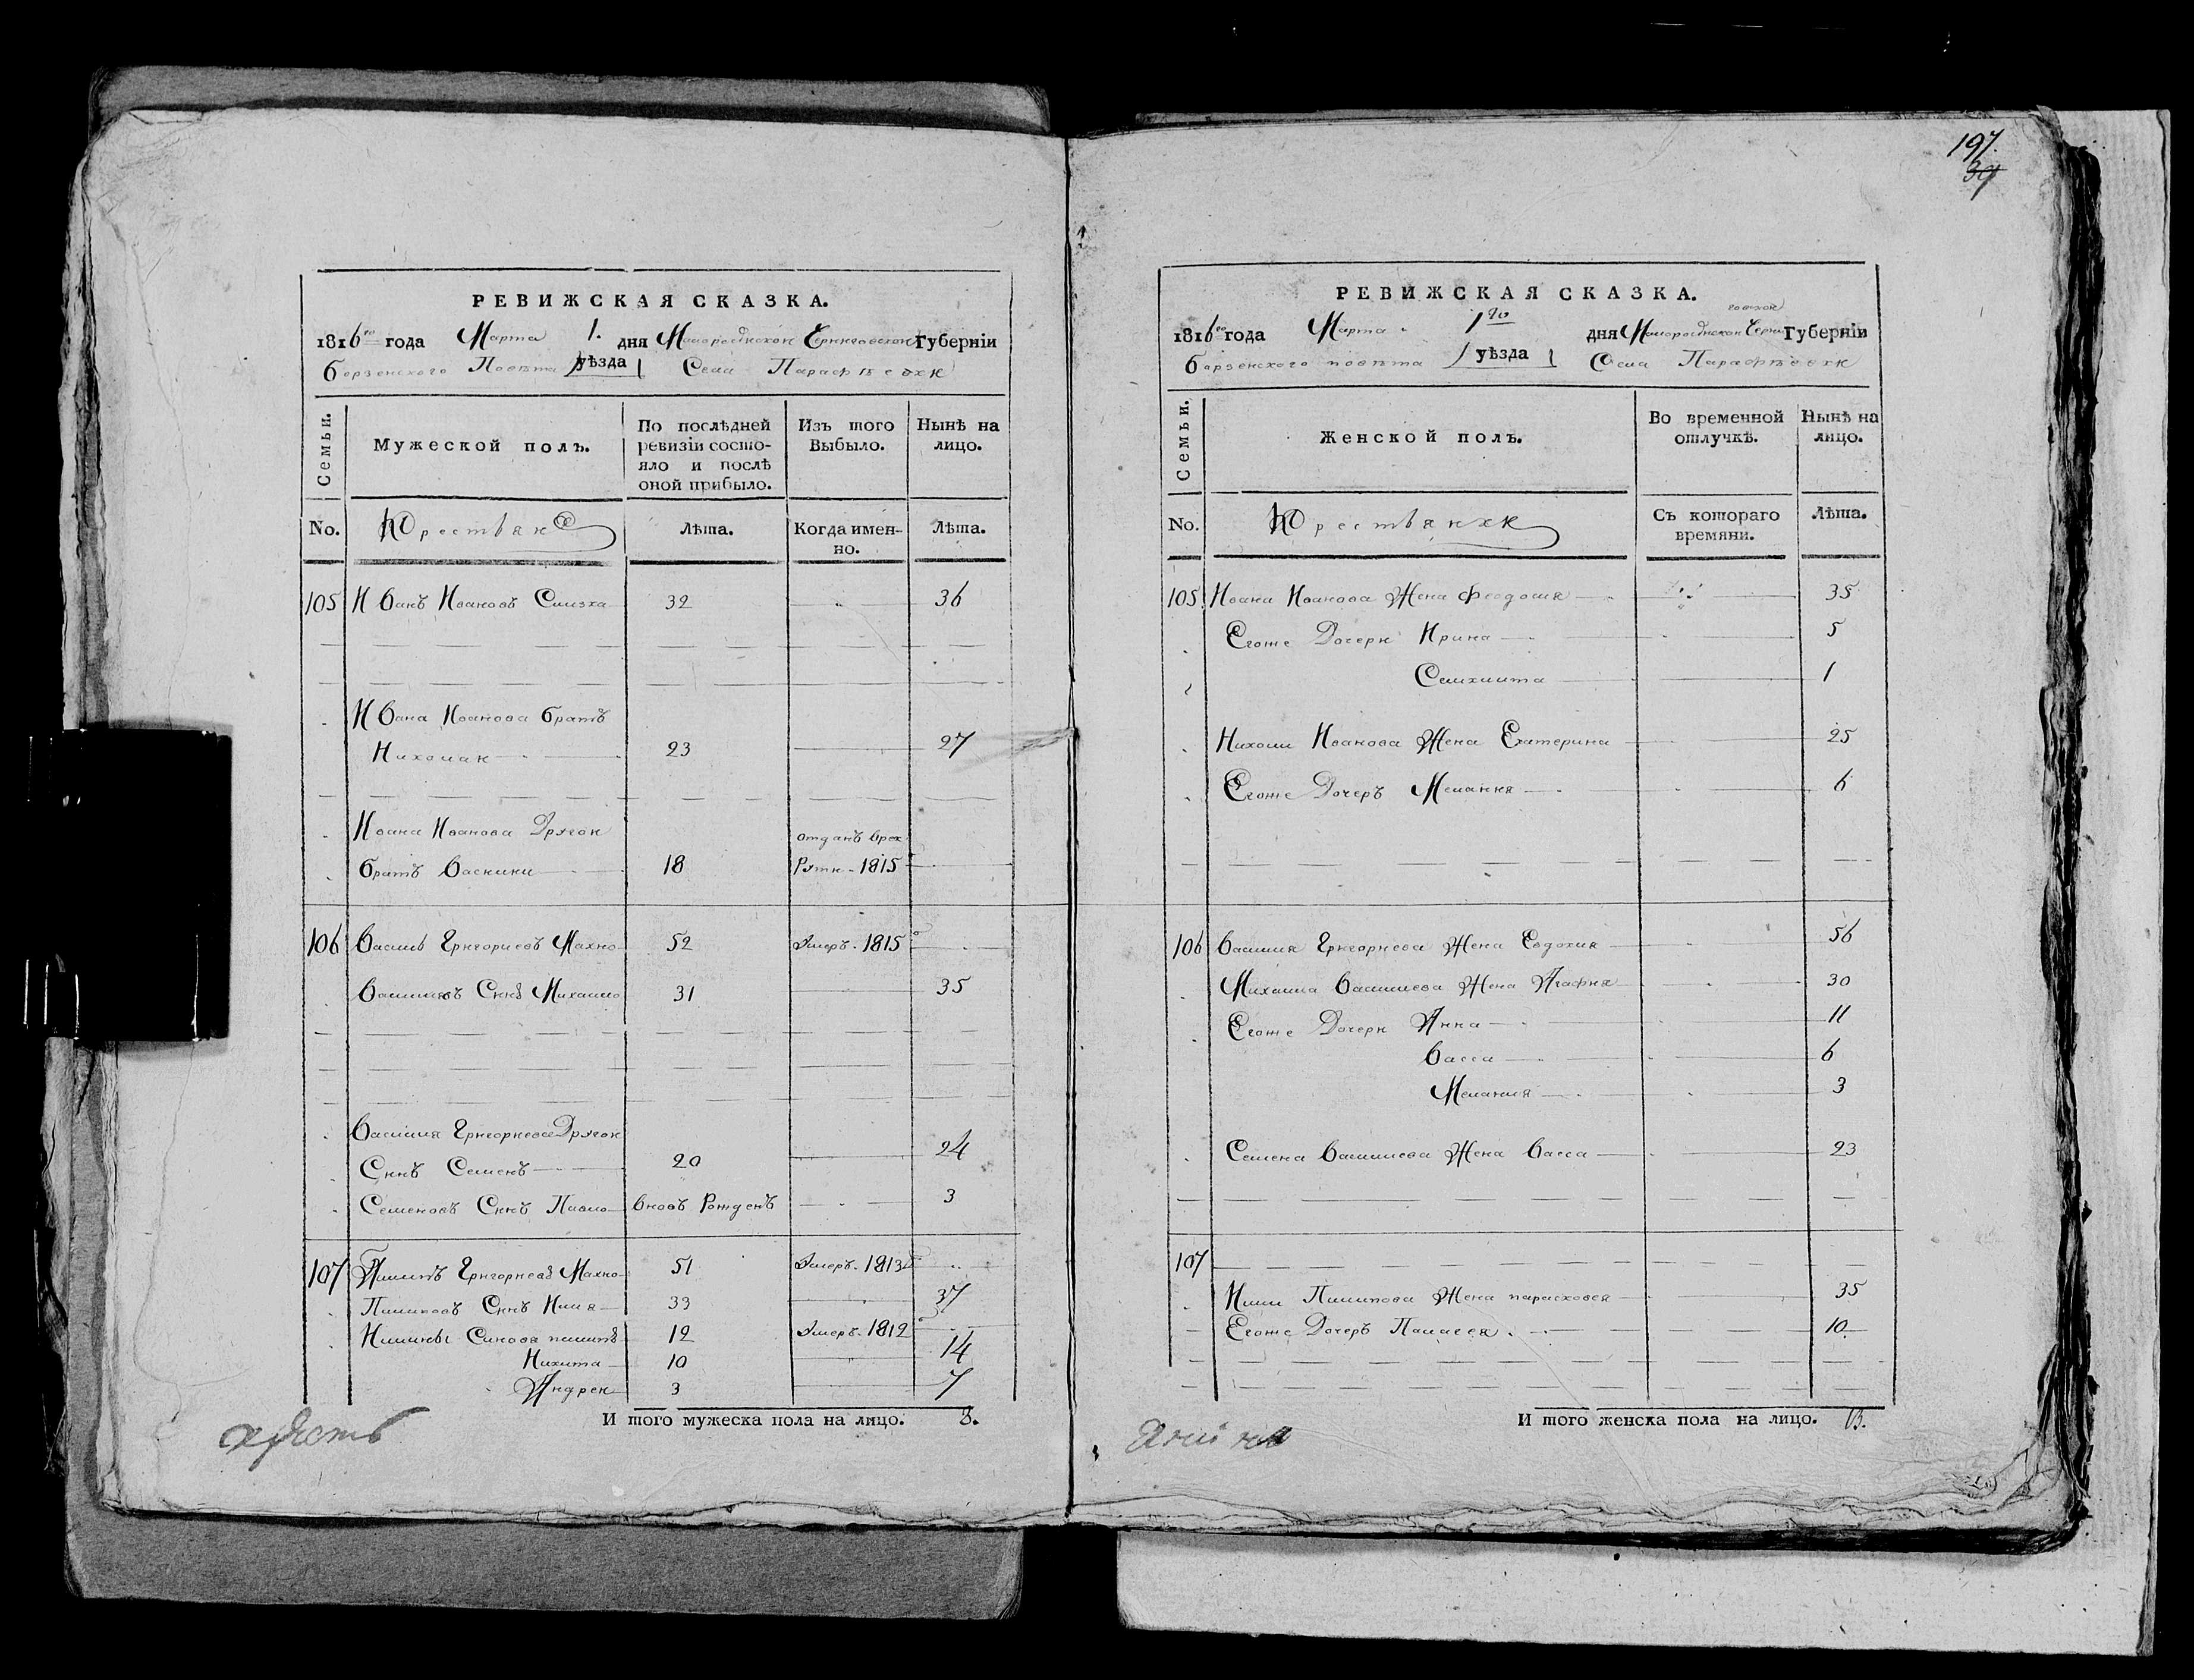 РЕВИЖСКАЯ СКАЗКА.
1816го года Марта 1. дня Малоросійской Черниговской Губерніи
Борзенского Повѣта уѣзда Села Парафѣевки
Семьи. Мужеской полъ. По послѣдней ревизіи состояло и послѣ оной прибыло. Изъ того Выбыло. Нынѣ на лицо.
No. Крестьяне Лѣта. Когда именно. Лѣта.
105 Иванъ Ивановъ 32 36
Ивана Иванова братъ
Николай 23 27
Ивана Иванова Другой отданъ врек
братъ Василий 18 руты 1815
106 Василь Григориевъ Махно 52 умеръ 1815
Василиевъ Снъ Михайло 31 35
Василия Григориева Другой
Снъ Семенъ 20 24
Семеновъ Снъ Павло вновь рожденъ 3
107 Пилипъ Григориевъ Махно 51 умеръ 1813
Пилиповъ Снъ Илия 33 37
Илиины Синовя пилипъ 12 умеръ 1812
Никита 10 14
Андрей 3 7
И того мужеска пола на лицо. 8.
197.
39
РЕВИЖСКАЯ СКАЗКА.
1816го года Марта 1го дня Малоросійской Черниговской Губерніи
Борзенского повѣта уѣзда Села Парафѣевки
Семьи. Женской полъ. Во временной отлучкѣ. Нынѣ на лицо.
No. Крестьянки Съ котораго времяни. Лѣта.
105 Ивана Иванова Жена Феодосия 35
Егоже Дочери Ирина 5
1
Николи Иванова Жена Екатерина 25
Егоже Дочеръ Мелания 6
106 Василия Григориева Жена Евдокия 56
Михаила Василиева Жена Агафия 30
Егоже Дочери Анна 11
Васса 6
Мелания 3
Семена Василиева Жена Васса 23
107
Илии Пилипова Жена парасковея 35
Егоже Дочеръ Палагея 10
И того женска пола на лицо. 13.